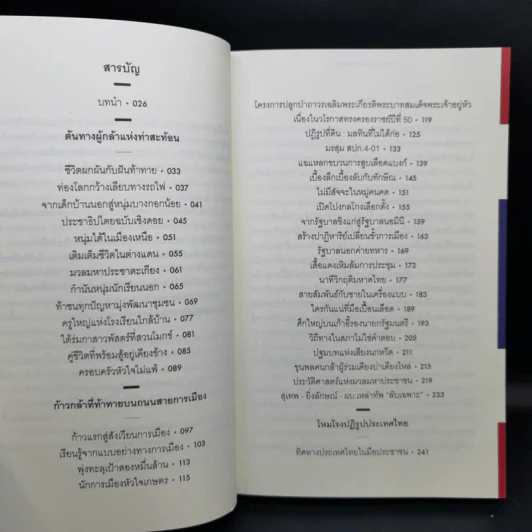 สารบัญ
บทนำ • 026
ต้นทางผู้กล้าแห่งท่าสะท้อน
ชีวิตผกผันกับฝันท้าทาย • 033
ท่องโลกกว้างเลียบทางรถไฟ • 037
จากเด็กบ้านนอกสู่หนุ่มบางกอกน้อย • 041
ประชาธิปไตยฉบับเชิงดอย • 045
หนุ่มใต้ในเมืองเหนือ • 051
เติมเต็มชีวิตในต่างแดน • 055
มวลมหาประชาตะเกียง • 061
กำนันหนุ่มนักเรียนนอก • 065
ท้าชนทุกปัญหามุ่งพัฒนาชุมชน • 069
ครูใหญ่แห่งโรงเรียนใกล้บ้าน • 077
ใต้ร่มกาสาวพัสตร์ที่สวนโมกข์ • 081
คู่ชีวิตที่พร้อมสู้อยู่เคียงข้าง • 085
ครอบครัวหัวใจไม่แพ้ • 089
ก้าวกล้าที่ท้าทายบนถนนสายการเมือง
ก้าวแรกสู่สังเวียนการเมือง • 097
เรียนรู้จากแบบอย่างทางการเมือง • 103
พุ่งทะลุเป้าสองหมื่นล้าน • 113
นักการเมืองหัวใจเกษตร • 115
โครงการปลูกป่าถาวรเฉลิมพระเกียรติพระบาทสมเด็จพระเจ้าอยู่หัว
เนื่องในวโรกาสทรงครองราชย์ปีที่ 50 • 119
ปฏิรูปที่ดิน : ผลทินที่ไม่ได้ก่อ • 125
มรสุม สปก.4-01 • 133
แฉแหลกขบวนการสูบเลือดแบงก์ • 139
เบื้องลึกเบื้องลับกับทักษิณ • 145
ไม่มีสัจจะในหมู่คนคด • 151
เปิดโปงกลโกงเลือกตั้ง • 155
จากรัฐบาลขิงแก่สู่รัฐบาลนอมินี • 159
สร้างปาฏิหาริย์เปลี่ยนขั้วการเมือง • 163
รัฐบาลนอกค่ายทหาร • 169
เสื้อแดงเหิมล้มการประชุม • 173
นาทีวิกฤติมหาดไทย • 177
สายสัมพันธ์กับชายในเครื่องแบบ • 183
ใครกันแน่ที่มือเปื้อนเลือด • 189
ศึกใหญ่บนเก้าอี้รองนายกรัฐมนตรี • 193
วิถีทางในสภาไม่ใช่คำตอบ • 205
ปฐมบทแห่งเสียงนกหวีด • 211
ขุนพลคนกล้าผู้ร่วมเคียงบ่าเคียงไหล่ • 215
ประวัติศาสตร์แห่งมวลมหาประชาชน • 219
สุเทพ - ยิ่งลักษณ์ - ผบ.เหล่าทัพ "ลับเฉพาะ" • 233
โหมโรงปฏิรูปประเทศไทย
ทิศทางประเทศไทยในมือประชาชน • 241